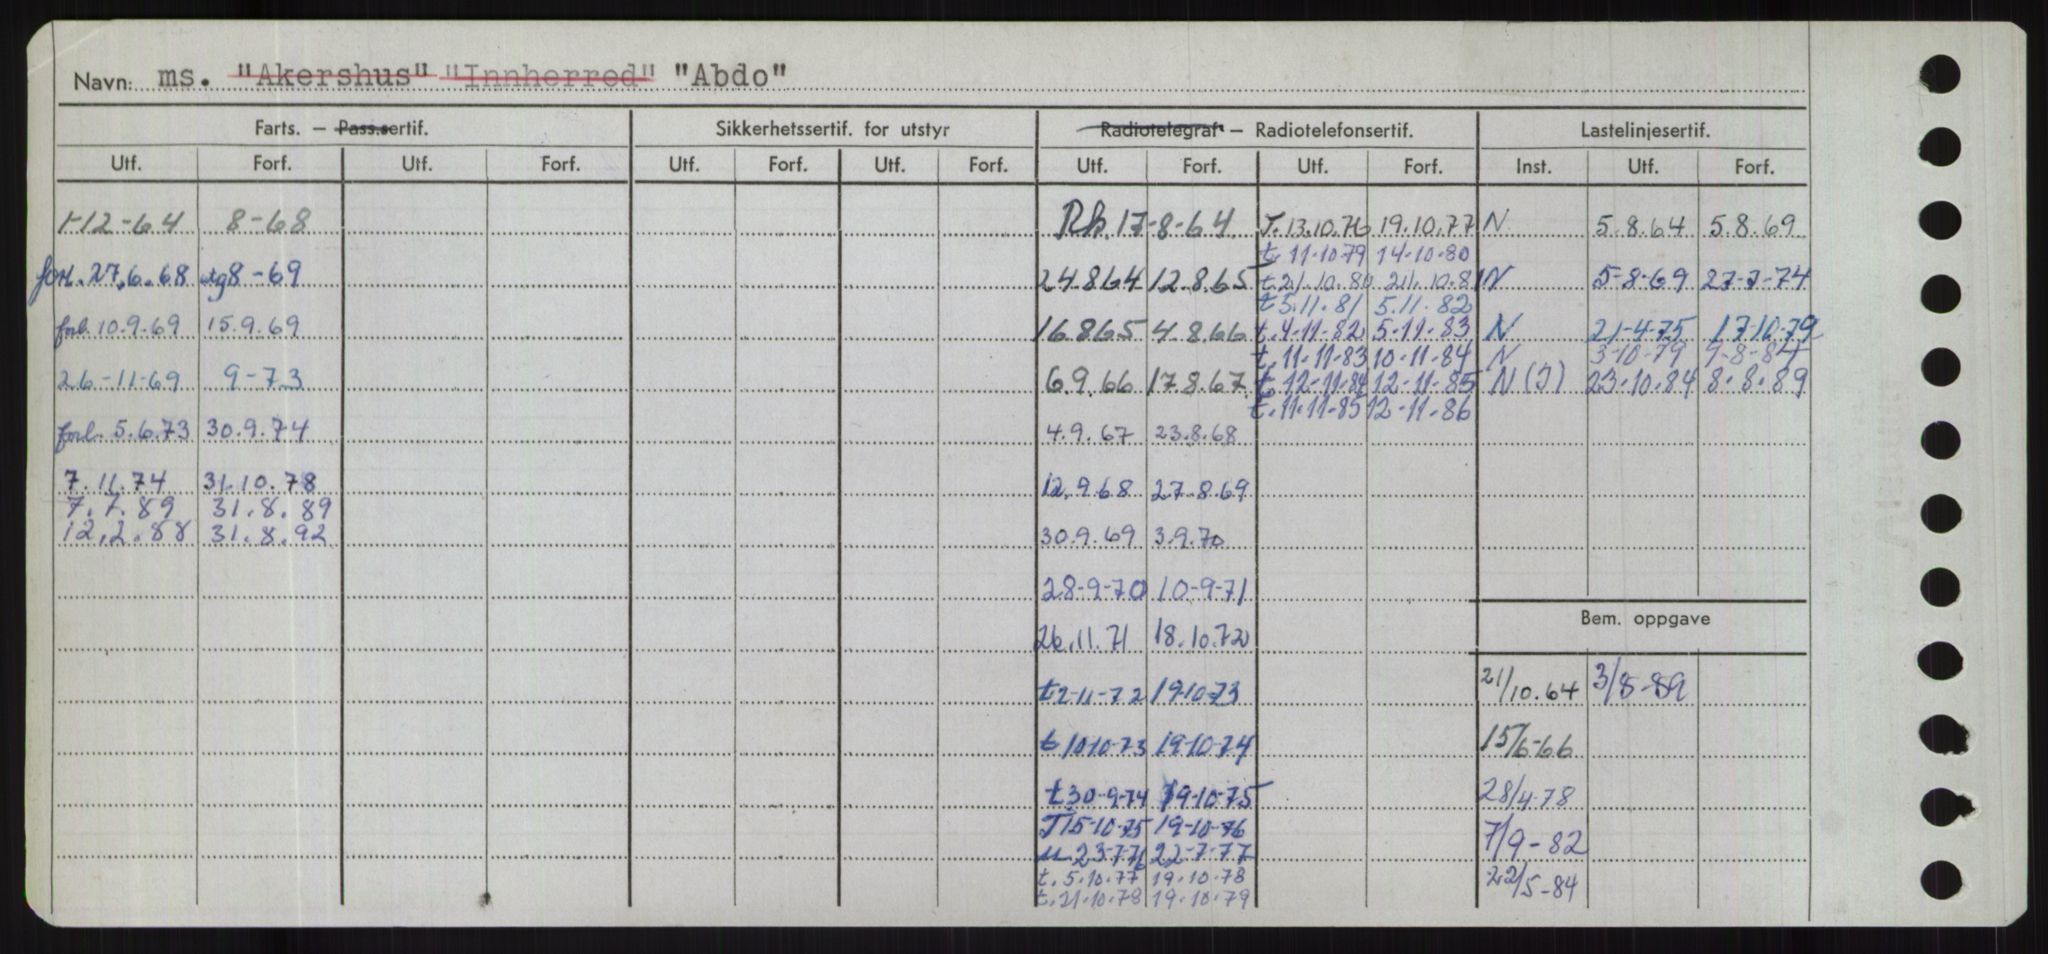 Navn: ms. "Akershus" "Innherred" "Abdo"
Farts. – Pass.sertif. Sikkerhetssertif. for utstyr Radiotelegraf – Radiotelefonsertif. Lastelinjesertif.
Utf. Forf. Utf. Forf. Utf. Forf. Utf. Forf. Utf. Forf. Utf. Forf. Inst. Utf. Forf.
1-12-64 8-68 Rh. 17-8-64 T. 13.10.76 19.10.77 N 5.8.64 5.8.69
t. 11-10-79 14-10-80
forl. 27.6.68 8-69 24.8.64 12.8.65 t. 21.10.80 21.10.81 N 5-8-69 27-7-74
t 5.11.81 5.11.82
forl. 10.9.69 15.9.69 16.8.65 4.8.66 t. 4-11-82 5-11-83 N 21-4-75 17.10.79
t. 11-11-83 10-11-84 N 3-10-79 9-8-84
26-11-69 9-73 6.9.66 17.8.67 t. 12-11-84 12-11-85 N (I) 23.10.84 8.8.89
t. 11-11-85 12-11-86
forl. 5.6.73 30.9.74 4.9.67 23.8.68
7.11.74 31.10.78 12.9.68 27.8.69
7.7.89 31.8.89
12.2.88 31.8.92 30.9.69 3.9.70
28-9-70 10-9-71
Bem. oppgave
26.11.71 18.10.72
t 2-11-72 19-10-73 21/10.64 3/8-89
t 10-10-73 19-10-74 15/6-66
t 30-9-74 19-10-75 28/4-78
T 15-10-75 19-10-76 7/9-82
u 23-7-76 22-7-77
t. 5.10.77 19.10.78 22/5-84
t. 21.10.78 19.10.79